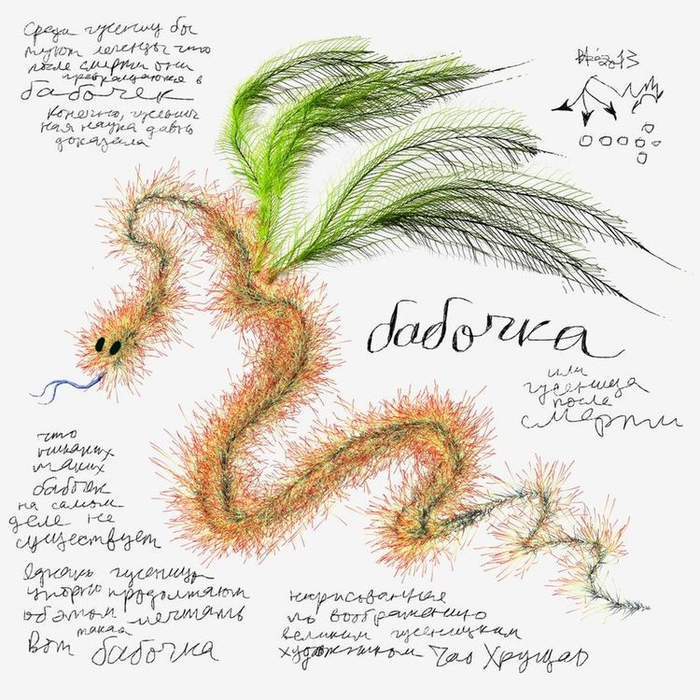 Среди гусениц бы
туют легенды что
после смерти они
превращаются в
бабочек
конечно, гусенич
ная наука давно
доказала
бабочка
или
гусеница
после
смерти
что
никаких
таких
бабочек
на самом
деле не
существует
Однако гусеницы
упорно продолжают
об этом мечтать
Вот такая
бабочка
нарисованная
по воображению
великим гусеницким
художником Чао Хрущао